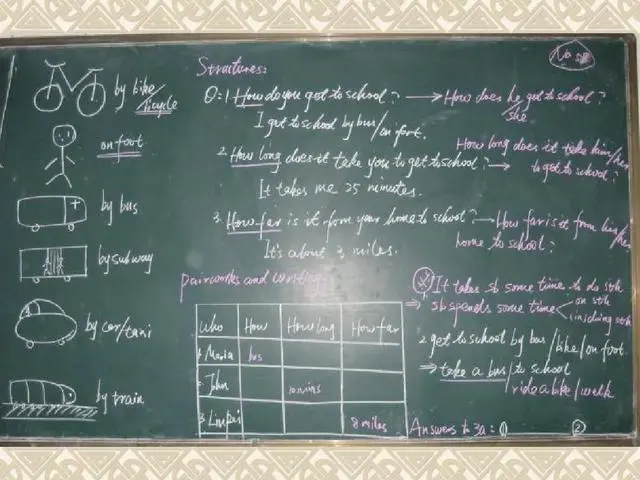 by bike/
bicycle
on foot
by bus
by subway
by car/taxi
by train
Structures:
Q: 1. How do you get to school? → How does he get to school?
she
I get to school by bus/on foot.
2. How long does it take you to get to school? → How long does it take him/her
to get to school?
It takes me 25 minutes.
3. How far is it from your home to school? → How far is it from his/her
home to school?
It's about 3 miles.
pairworks and writing
Who How How long How far
1 Maria bus
2 John 10 mins
3 8 miles
It takes sb some time to do sth
⇒ sb spends some time on sth
(in) doing sth
2 get to school by bus/bike/on foot
⇒ take a bus to school
/ride a bike/walk
Answers to 3a: ① ②